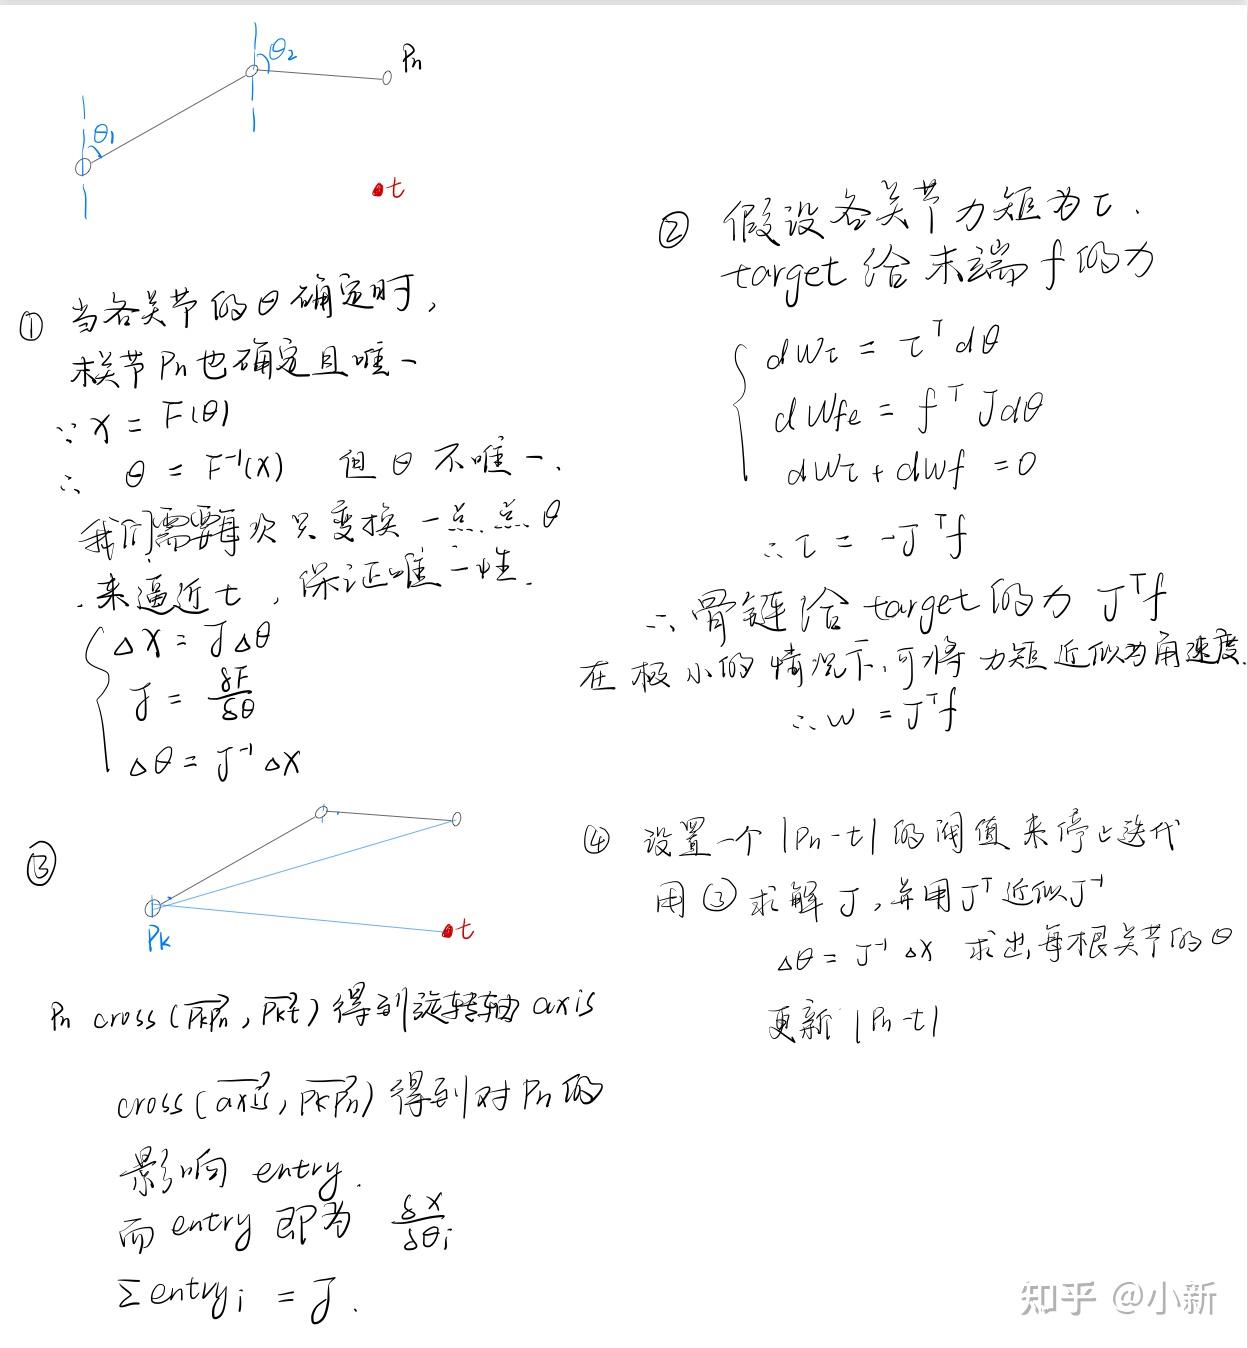 θ₁
θ₂
Pn
t
① 当各关节的θ确定时,
末关节Pn也确定且唯一
∵ x = F(θ)
∴ θ = F⁻¹(x) 但θ不唯一.
我们需要每次只变换一点点θ
来逼近t, 保证唯一性.
Δx = JΔθ
J = δF/δθ
Δθ = J⁻¹Δx
② 假设各关节力矩为τ.
target给末端f的力
dWτ = τᵀdθ
dWfe = fᵀJdθ
dWτ + dWf = 0
∴ τ = -Jᵀf
∴ 骨链给target的力 Jᵀf
在极小的情况下,可将力矩近似为角速度.
∴ w = Jᵀf
③
Pk
t
Pn cross(PkPn, Pkt) 得到旋转轴 axis
cross(axis, PkPn) 得到对Pn的
影响 entry.
而 entry 即为 δx/δθi
Σentryi = J.
④ 设置一个|Pn-t|的阈值来停止迭代
用③求解J,并用Jᵀ近似J⁻¹
Δθ = J⁻¹Δx 求出每根关节的θ
更新|Pn-t|
知乎 @小新